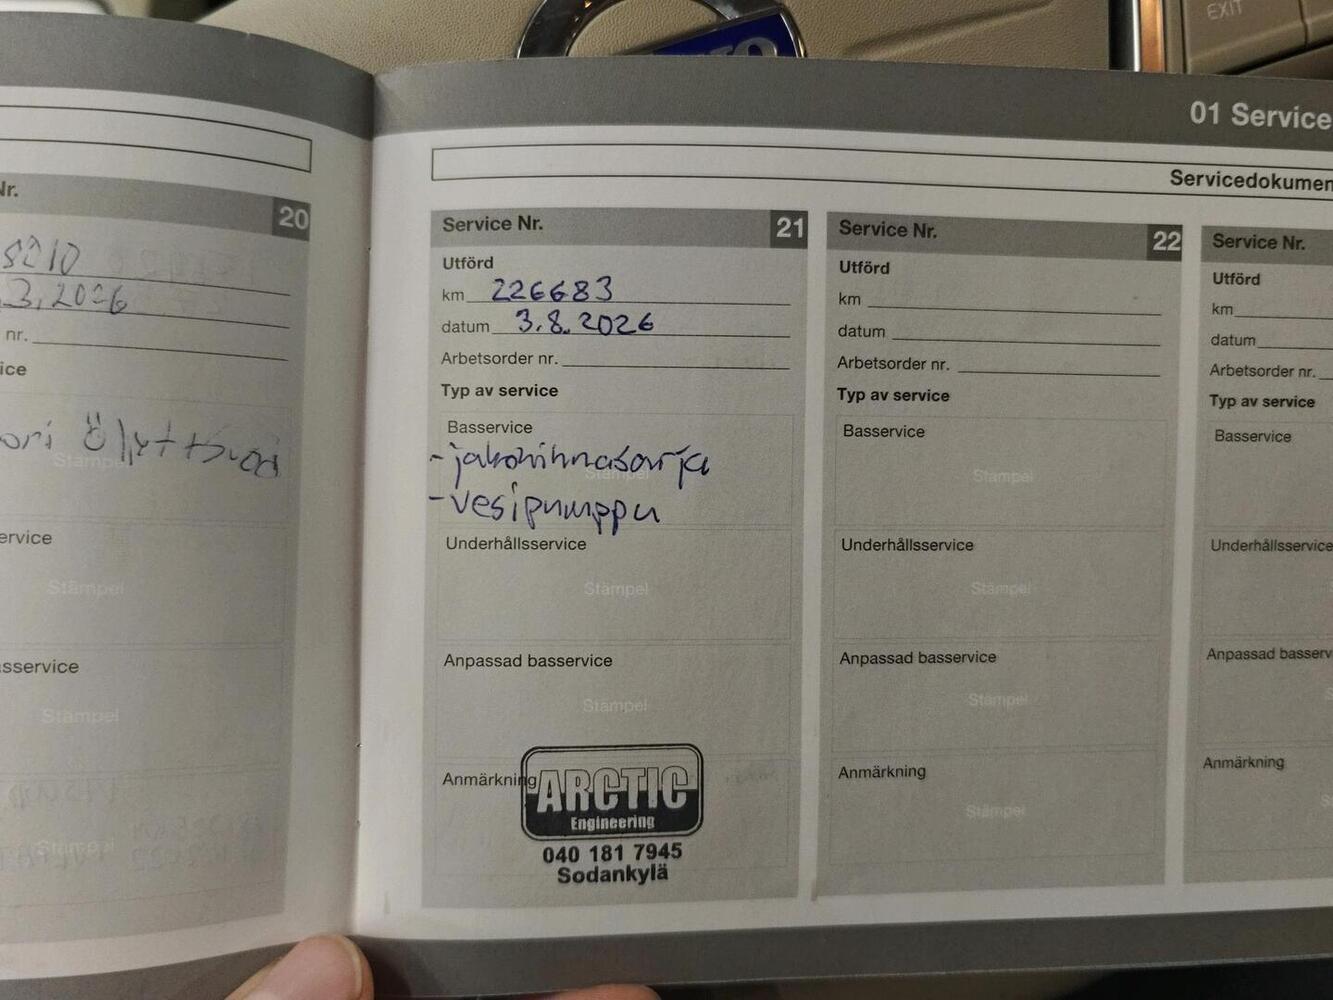 EXIT
01 Service
Servicedokumen
Nr.
20
8210
.3.2026
nr.
ice
ori öljyt + suod
Stämpel
ervice
Stämpel
sservice
Stämpel
Stämpel
Service Nr. 21
Utförd
km 226683
datum 3.8.2026
Arbetsorder nr.
Typ av service
Basservice
- jakohihnasarja
Stämpel
- vesipumppu
Underhållsservice
Stämpel
Anpassad basservice
Stämpel
Anmärkning
ARCTIC
Engineering
040 181 7945
Sodankylä
Service Nr. 22
Utförd
km
datum
Arbetsorder nr.
Typ av service
Basservice
Stämpel
Underhållsservice
Stämpel
Anpassad basservice
Stämpel
Anmärkning
Stämpel
Service Nr.
Utförd
km
datum
Arbetsorder nr.
Typ av service
Basservice
Underhållsservice
Anpassad basserv
Anmärkning